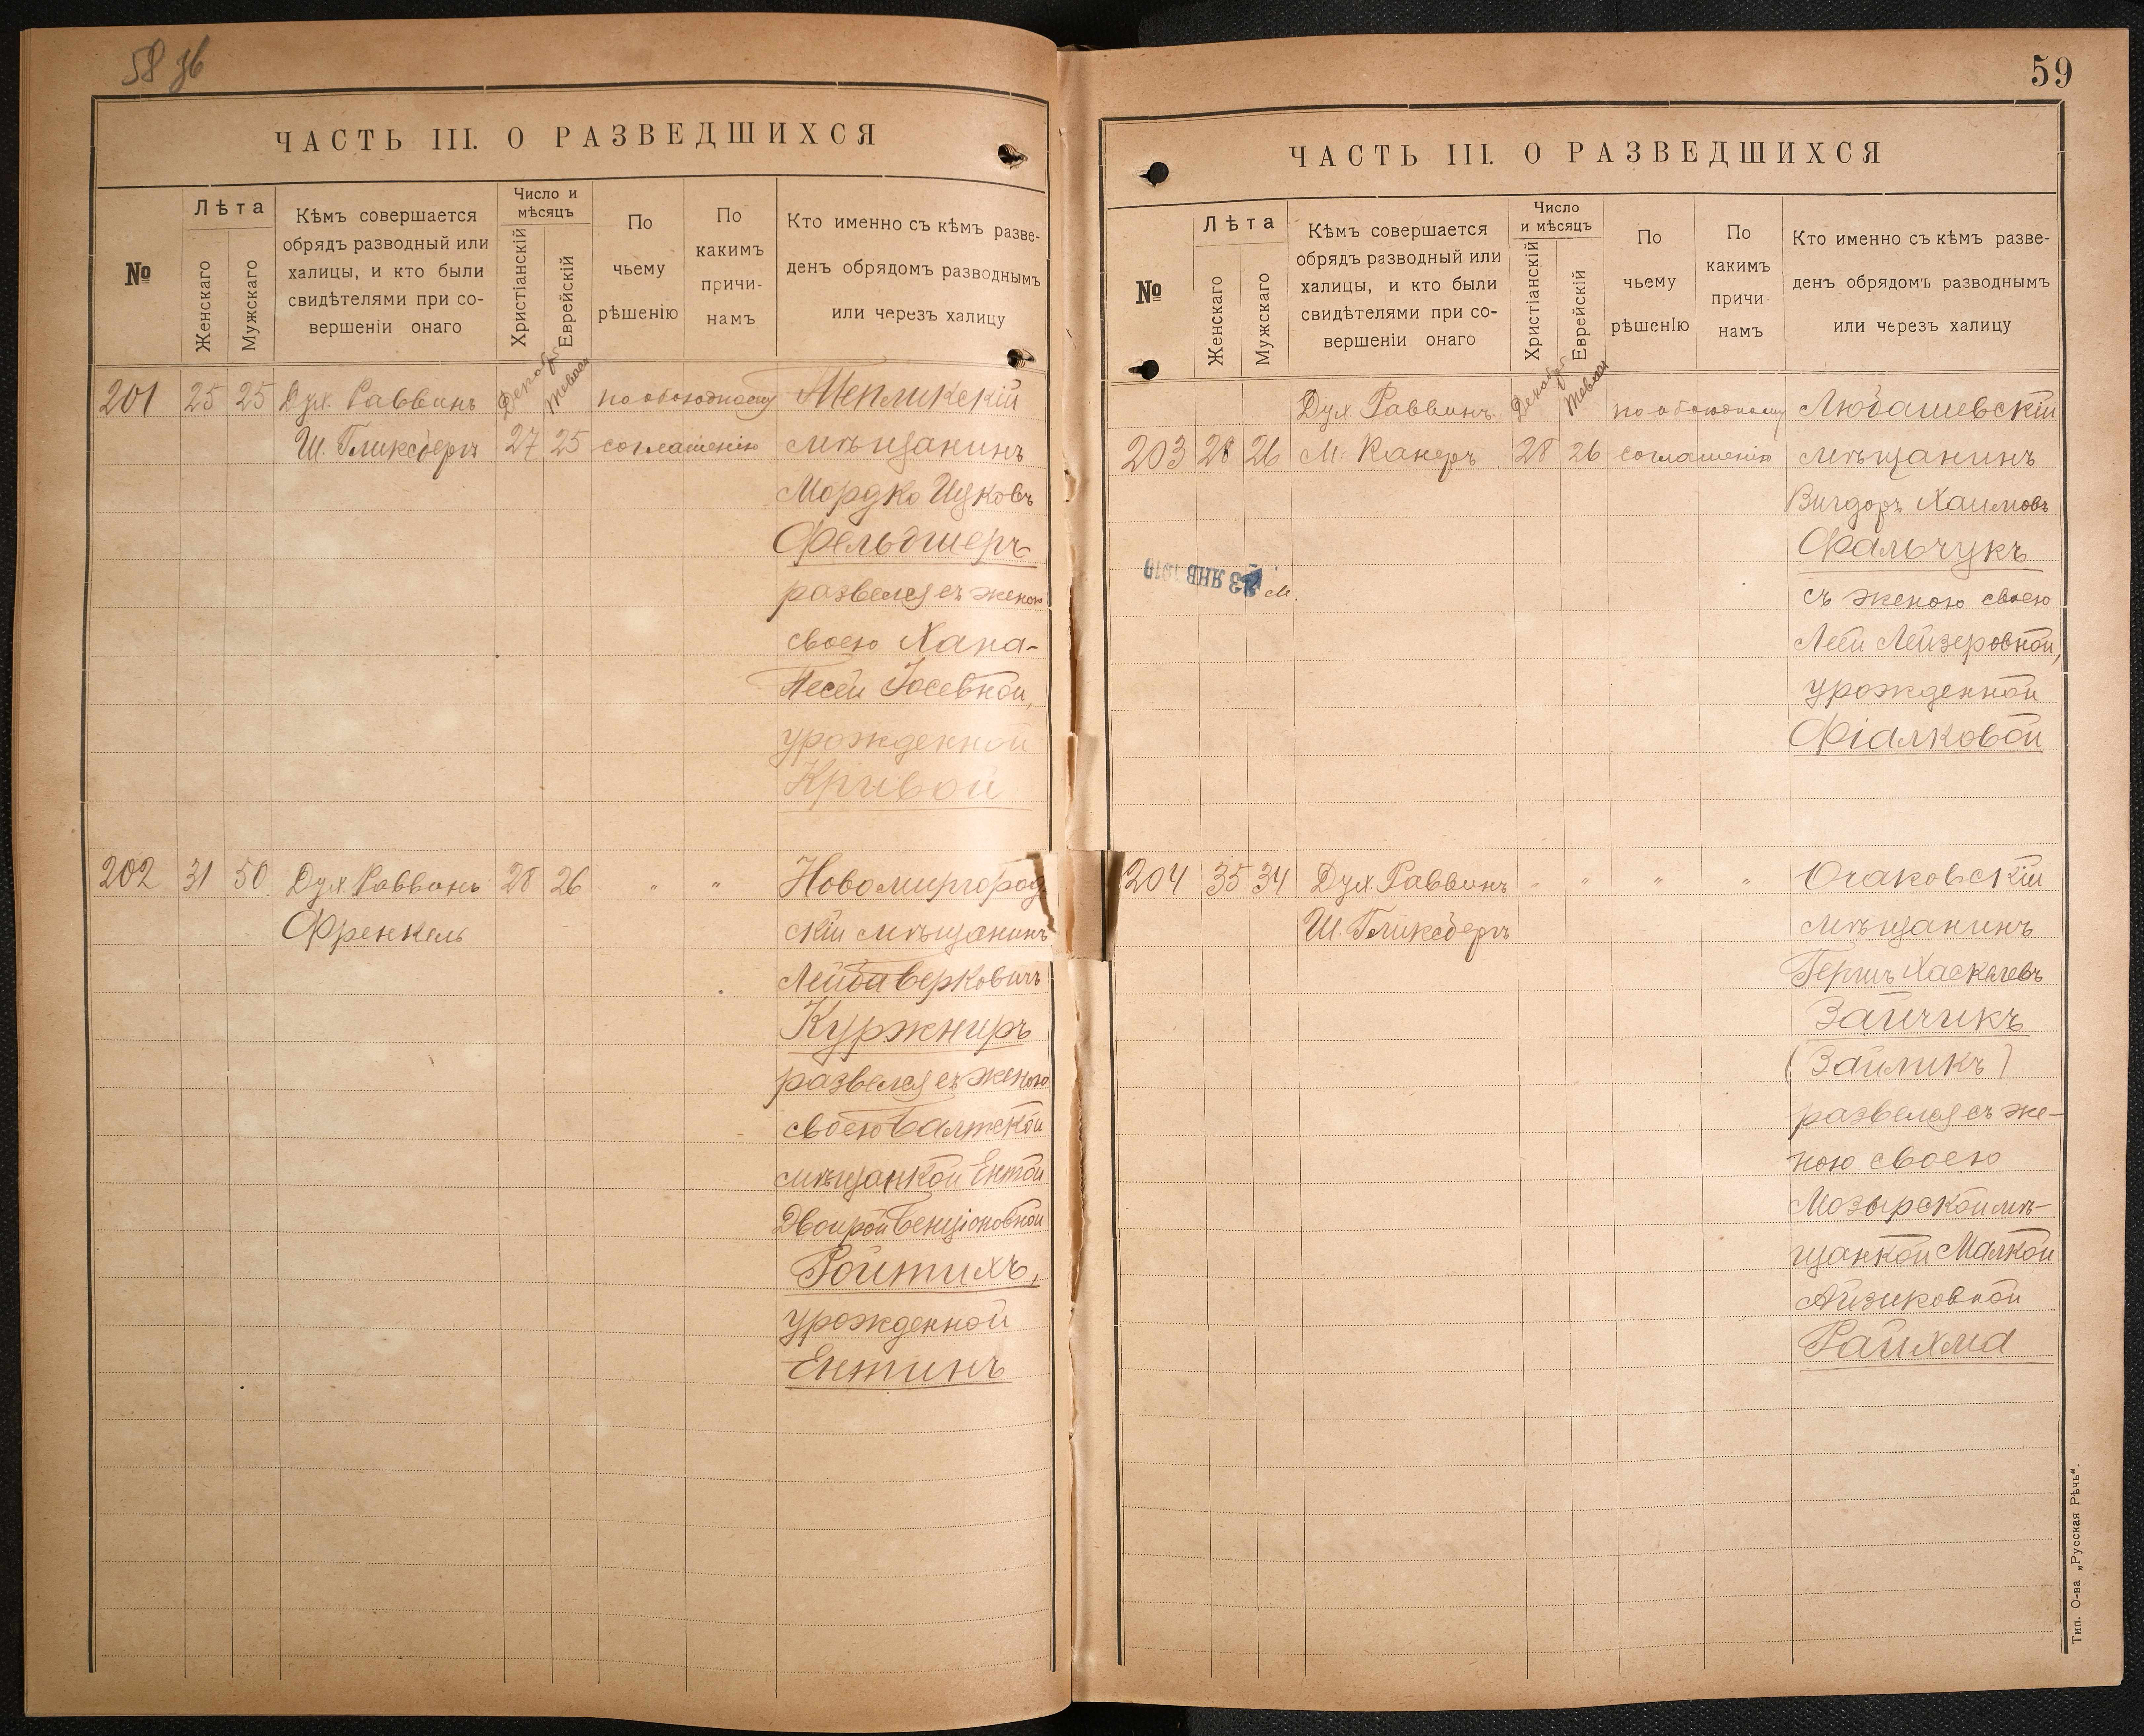 58 об
ЧАСТЬ III. О РАЗВЕДШИХСЯ
№
Лѣта
Женскаго
Мужскаго
Кѣмъ совершается
обрядъ разводный или
халицы, и кто были
свидѣтелями при со-
вершеніи онаго
Число и
мѣсяцъ
Христіанскій
Еврейскій
По
чьему
рѣшенію
По
какимъ
причи-
намъ
Кто именно съ кѣмъ разве-
денъ обрядомъ разводнымъ
или черезъ халицу
201 25 25 Дух. Раввинъ Декабр Тевеса по обоюдному Тепликскій
Ш. Гликсбергъ 27 25 соглашенію мѣщанинъ
Мордко Ицковъ
Фельдшеръ
развелся съ женою
своею Хана-
Песей Іосевной,
урожденной
Кривой
202 31 50 Дух. Раввинъ 28 26 " " Новомиргород
Френкель скій мѣщанинъ
Лейба Берковичъ
Куржниръ
развелся съ женою
своею Балтской
мѣщанкой Ентой
Двойрой Бенціоновной
Ройтихъ,
урожденной
Ентинъ
59
ЧАСТЬ III. О РАЗВЕДШИХСЯ
№
Лѣта
Женскаго
Мужскаго
Кѣмъ совершается
обрядъ разводный или
халицы, и кто были
свидѣтелями при со-
вершеніи онаго
Число
и мѣсяцъ
Христіанскій
Еврейскій
По
чьему
рѣшенію
По
какимъ
причи
намъ
Кто именно съ кѣмъ разве-
денъ обрядомъ разводнымъ
или черезъ халицу
Дух. Раввинъ Декабр Тевеса по обоюдному Любашевскій
203 28 26 М. Канеръ 28 26 соглашенію мѣщанинъ
Вигдоръ Хаимовъ
Фальчукъ
23 ЯНВ 1910 м.
съ женою своею
Леей Лейзеровной,
урожденной
Фіалковой
204 35 34 Дух. Раввинъ " " " " Очаковскій
Ш. Гликсбергъ мѣщанинъ
Гершъ Хаскелевъ
Зайчикъ
(Зайликъ)
развелся съ же-
ною своею
Мозырской мѣ-
щанкой Малкой
Айзиковной
Райхма
Тип. О-ва „Русская Рѣчь“.